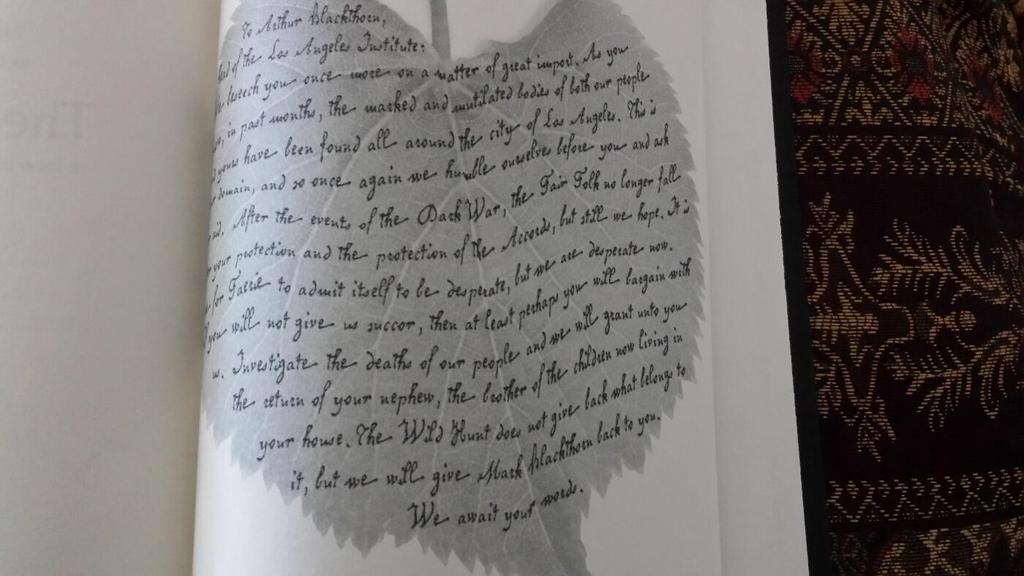 The
To Arthur Blackthorn,
of the Los Angeles Institute:
beseech you once more on a matter of great import. As you
in past months, the marked and mutilated bodies of both our people
yours have been found all around the city of Los Angeles. This is
domain, and so once again we humble ourselves before you and ask
After the events of the Dark War, the Fair Folk no longer fall
your protection and the protection of the Accords, but still we hope. It is
for Faerie to admit itself to be desperate, but we are desperate now.
you will not give us succor, then at least perhaps you will bargain with
us. Investigate the deaths of our people and we will grant unto you
the return of your nephew, the brother of the children now living in
your house. The Wild Hunt does not give back what belongs to
it, but we will give Mark Blackthorn back to you.
We await your words.